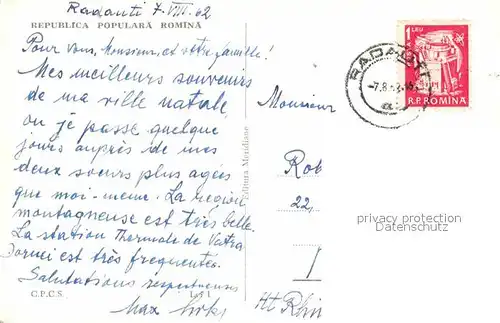 Radauti 7.VIII.62
REPUBLICA POPULARĂ ROMÎNĂ
Pour vous, Monsieur, et votre famille!
Mes meilleurs souvenirs
de ma ville natale,
ou je passe quelque
jours auprès de mes
deux soeurs plus agées
que moi-meme. La region
montagneuse est très belle.
La station Thermale de Vatra
Dornei est très frequentée.
Salutations respectueuses
Max
C.P.C.S.
Editura Meridiane
1 LEU
R.P.ROMINA
RADAUTI
Monsieur
Rob
22,
Ht Rhin
privacy protection
Datenschutz